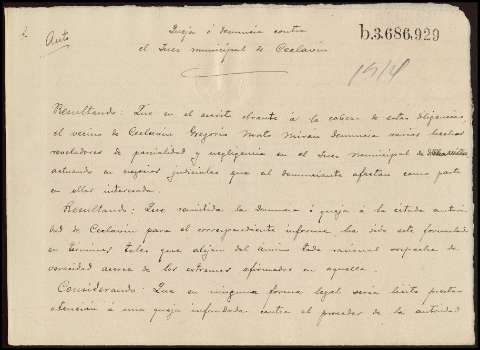 Auto
Queja ó denuncia contra
el Juez municipal de Ceclavin
b.3.686.929
Resultando: Que en el escrito obrante á la cabeza de estas diligencias,
el vecino de Ceclavin Gregorio Mato Miran denuncia varios hechos
reveladores de parcialidad y negligencia en el Juez Municipal de
actuando en negocios judiciales que al denunciante afectan como parte
en ellos interesada.
Resultando: Que remitida la denuncia ó queja á la citada autori-
dad de Ceclavin para el correspondiente informe ha sido este formulado
en términos tales que alejan del ánimo toda racional sospecha de
veracidad acerca de los extremos afirmados en aquella.
Considerando: Que en ninguna forma legal sería lícito prestar
atención á una queja infundada contra el proceder de la autoridad